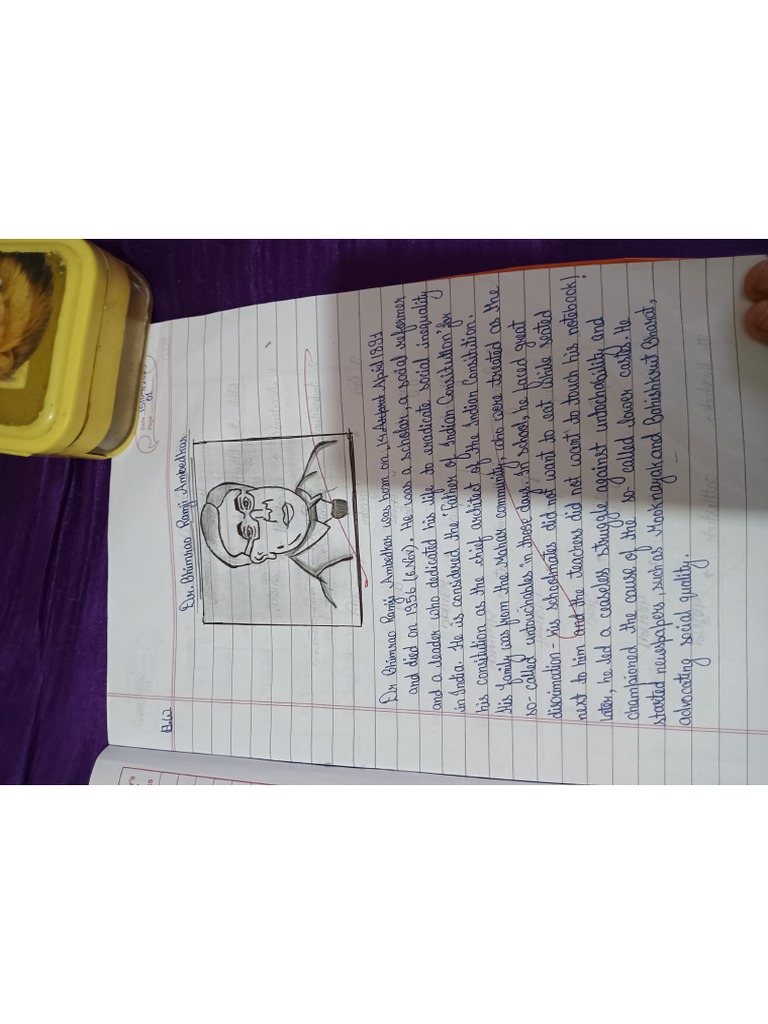 Date 15/04/202
Page 01
B.W
Dr. Bhimrao Ramji Ambedkar
Dr Bhimrao Ramji Ambedkar was born on 14 August April 1891
and died on 1956 (6 Nov). He was a scholar, a social reformer
and a leader who dedicated his life to eradicate social inequality
in India. He is considered the 'Father of Indian Constitution' for
his constitution as the chief architect of the Indian Constitution.
His family was from the Mahar community, who were treated as the
so-called untouchables in those days. In school, he faced great
discrimation - his schoolmates did not want to eat while seated
next to him and the teachers did not want to touch his notebook!
later, he led a ceaseless struggle against untochability and
championed the cause of the so-called lower caste. He
started newspapers, such as Mooknayak and Bahishkrut Bharat,
advocating social quality.